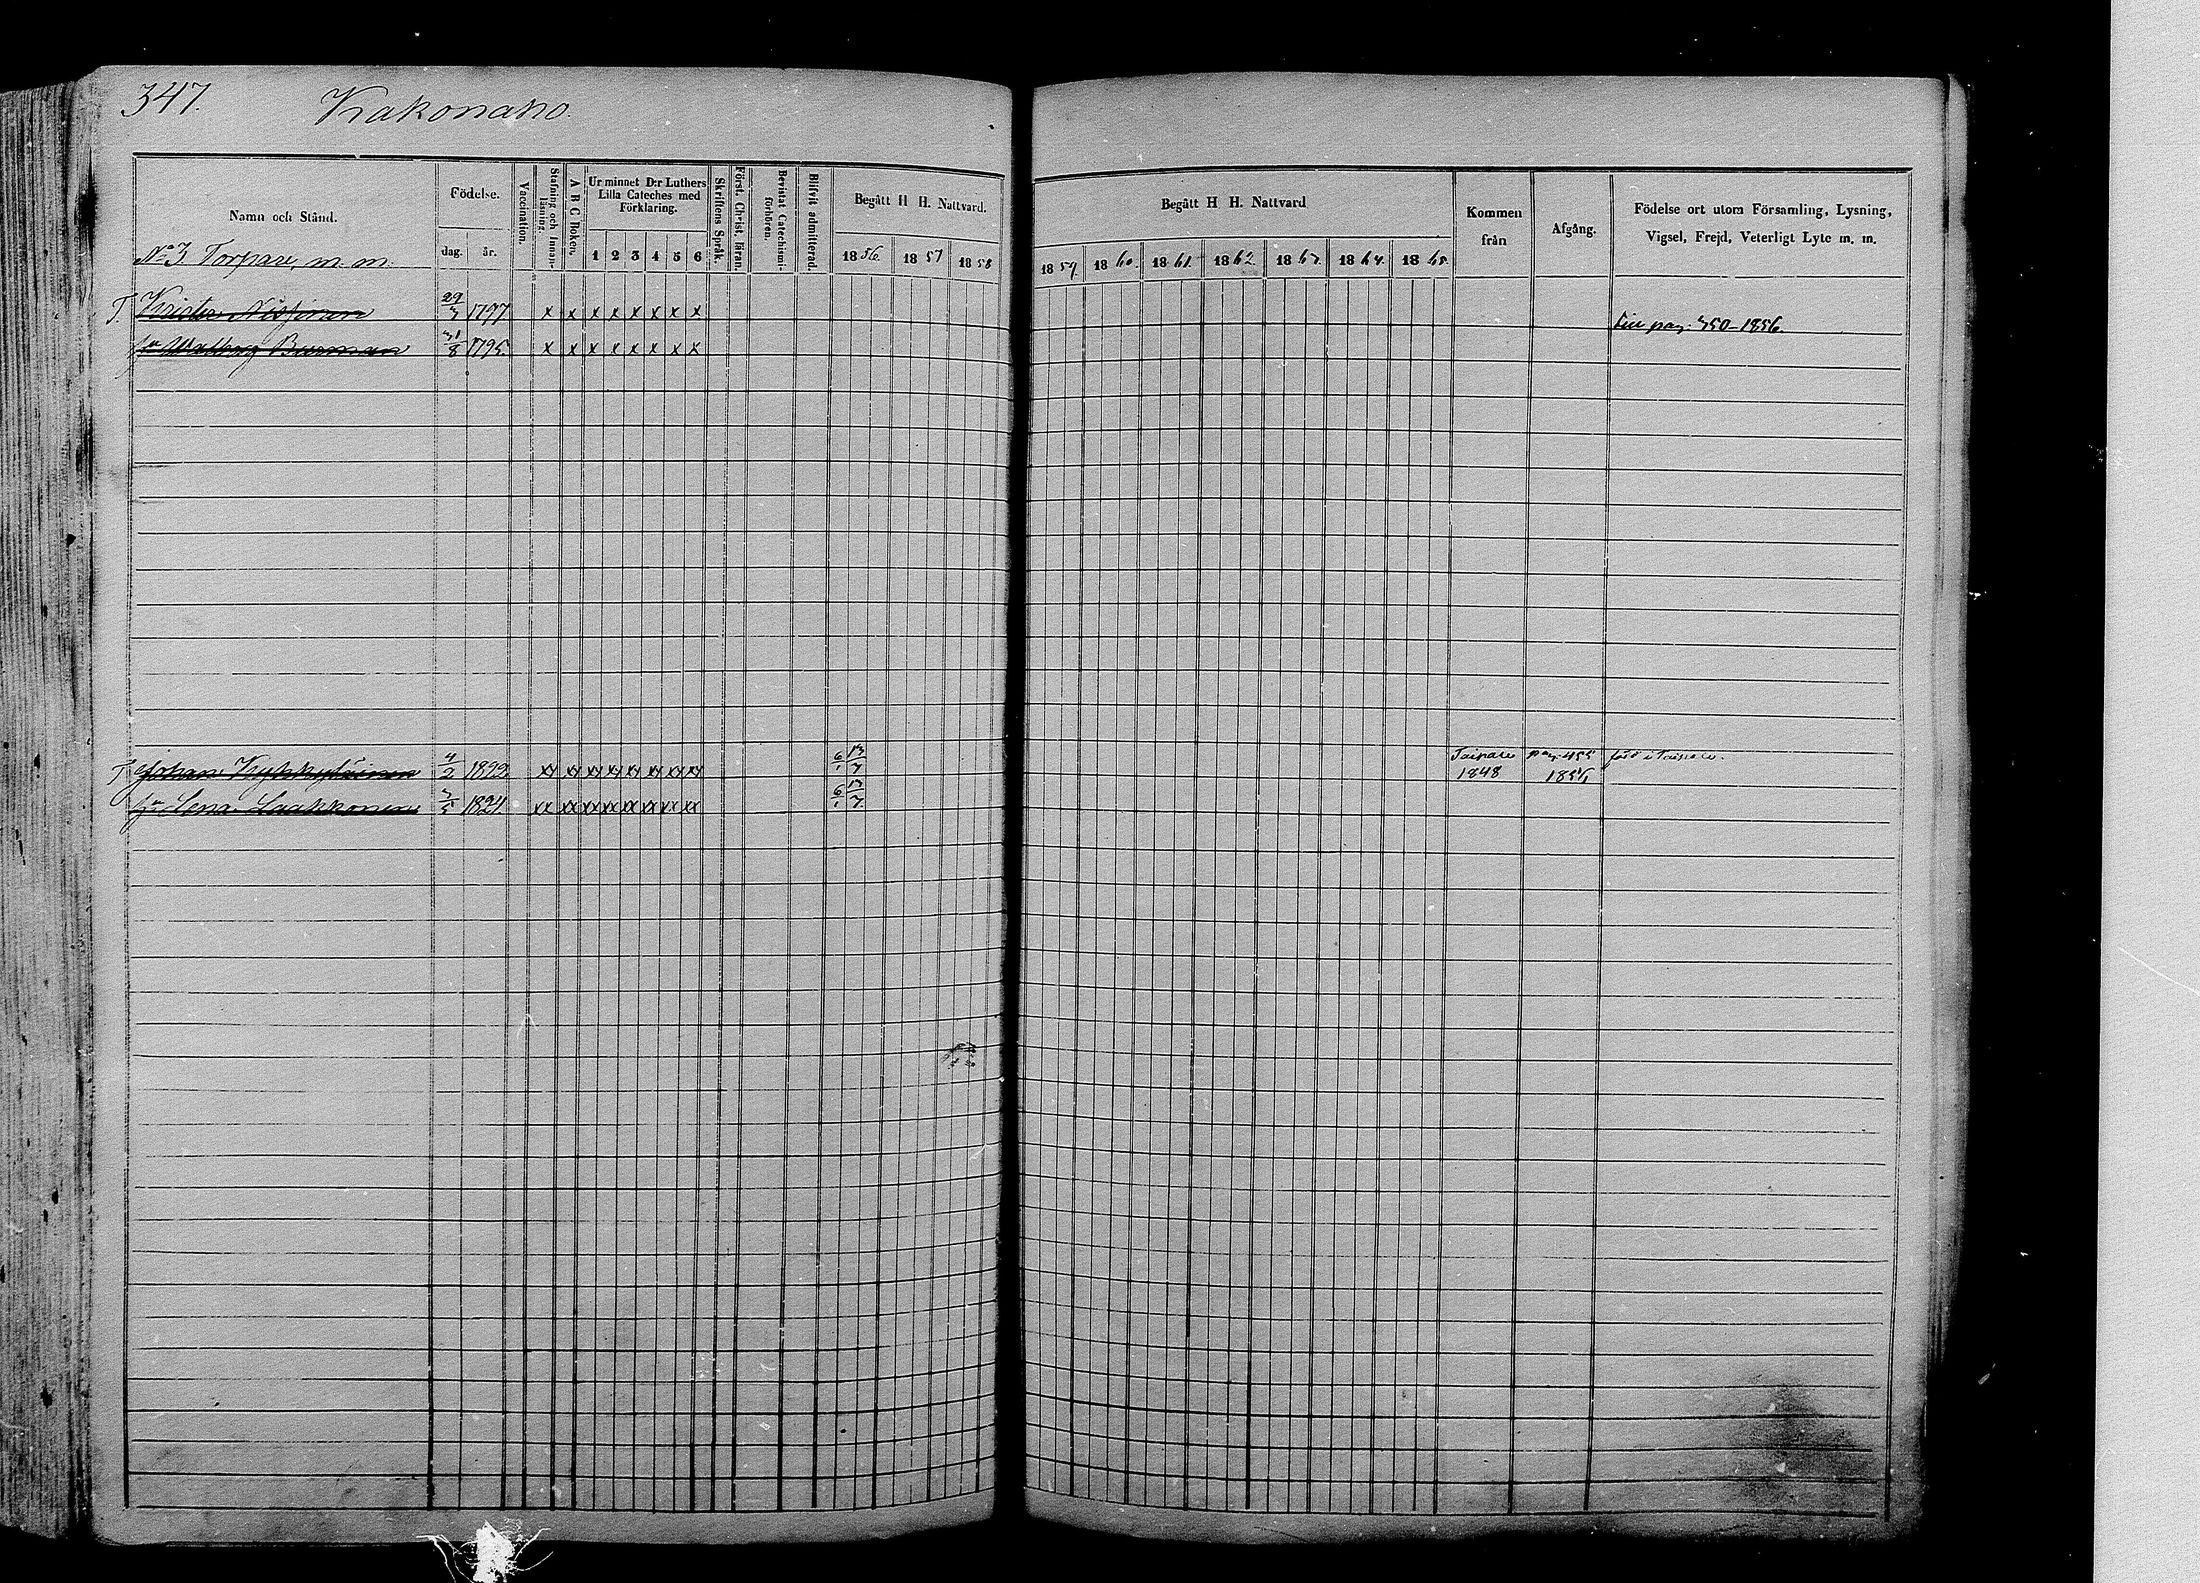 347. Kakonaho.
Namn och Stånd. Födelse. Vaccination. Stafning och Innan-läsning. A B C Boken. Ur minnet D:r Luthers Lilla Cateches med Förklaring. Skriftens Språk. Först. Christ. läran. Bevistat Catechismi-förhören. Blifvit admitterad. Begått H H. Nattvard. Begått H H. Nattvard Kommen från Afgång. Födelse ort utom Församling, Lysning, Vigsel, Frejd, Veterligt Lyte m. m.
No 3 Torpare, m. m. dag. år. 1 2 3 4 5 6 1856. 1857 1858 1859. 1860. 1861 1862. 1863. 1864. 1865.
T. Krister Nissinen 29/3 1797 x x x x x x x x Liu pag. 350-1856
hu Walborg Burman 31/8 1795. x x x x x x x x
T. Johan Kykkyläinen 4/2 1822. xx xx xx xx xx xx xx xx 6/1 13/7 Taipale 1848 pag. 455 född i Taipale.
hu Lena Laakkonen 1824. xx xx xx xx xx xx xx xx 6/1 13/7.